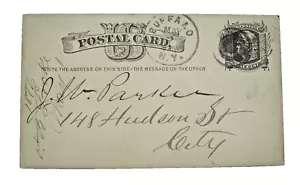 BUFFALO
MAY
N.Y.
US
POSTAL CARD.
WRITE THE ADDRESS ON THIS SIDE - THE MESSAGE ON THE OTHER
J. W. Parker
148 Hudson St
City